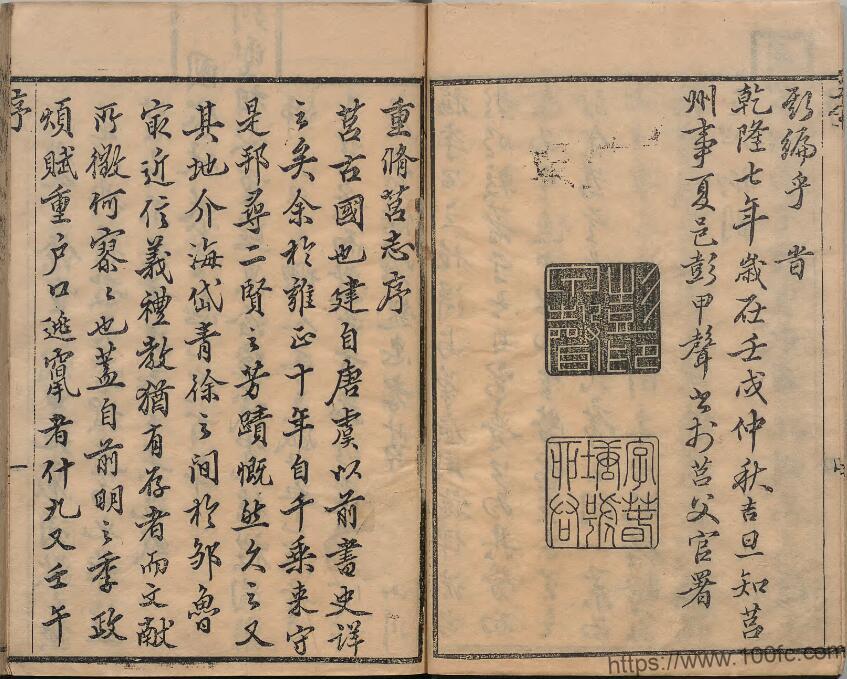 斯編乎旹
乾隆七年歲在壬戌仲秋吉旦知莒
州事夏邑彭甲聲書於莒父官署
重脩莒志序
莒古國也建自唐虞以前書史詳
之矣余於雍正十年自千乗来守
是邦尋二賢之芳蹟慨然久之又
其地介海岱青徐之间於邹魯
最近信義禮教猶有存者而文献
所徵何寥寥也蓋自前明之季政
煩賦重户口逃竄者什九又壬午
序
一
https://www.100fc.com